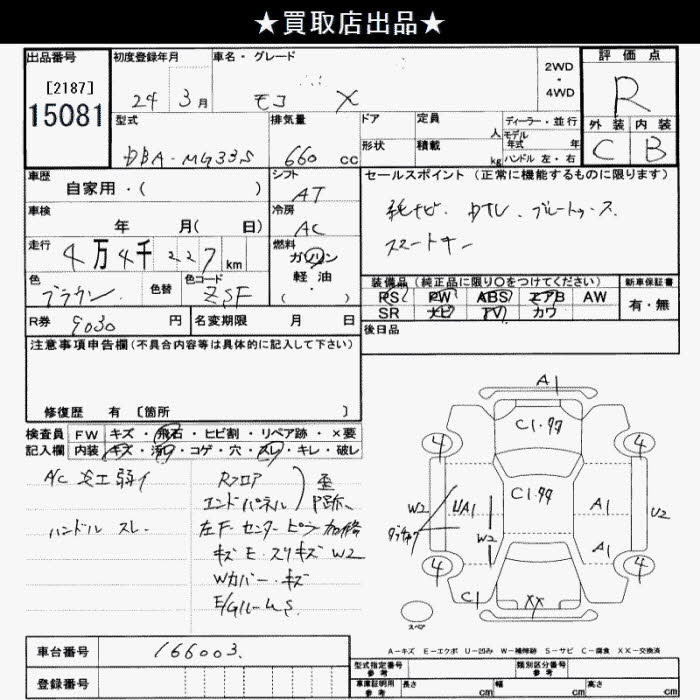 ★買取店出品★
出品番号
[2187]
15081
初度登録年月
24 3月
車名・グレード
モコ X
2WD・4WD
評価点
R
外装 内装
C B
型式
DBA-MG33S
排気量
660 cc
ドア
形状
定員 人
積載 kg
ディーラー・並行
モデル年式 年
ハンドル 左・右
車歴
自家用・( )
シフト
AT
車検
年 月( 日)
冷房
AC
走行
4万4千227 km
燃料
ガソリン
軽・油
( ・ )
色
ブラウン
色替
色コード
ZSF
R券 9030 円
名変期限 月 日
セールスポイント(正常に機能するものに限ります)
純ナビ. DTV. ブルートゥース.
スマートキー
装備品(純正品に限り○をつけてください)
PS PW ABS エアB AW
SR ナビ TV カワ
新車保証書
有・無
後日品
注意事項申告欄(不具合内容等は具体的に記入して下さい)
修復歴 有 [箇所 ]
検査員 FW キズ・飛石・ヒビ割・リペア跡・×要
記入欄 内装 キズ・汚れ・コゲ・穴・スレ・キレ・破レ
A/C 冷エ弱イ
ハンドル スレ.
Rフロア
エンドパネル
歪
左F.センターピラー 加修
キズ E.スリキズ W2
Wカバー.キズ
E/Gルーム S
A1
C1.77
4 4
C1.77
W2
UA1
A1
U2
W2
A1
4 4
C1
XX
スペア
A-キズ E-エクボ U-凹み W-補修跡 S-サビ C-腐食 XX-交換済
車台番号 166003
登録番号
型式指定番号 参考
類別区分番号 参考
車庫証明用 参考
長さ cm
幅 cm
高さ cm